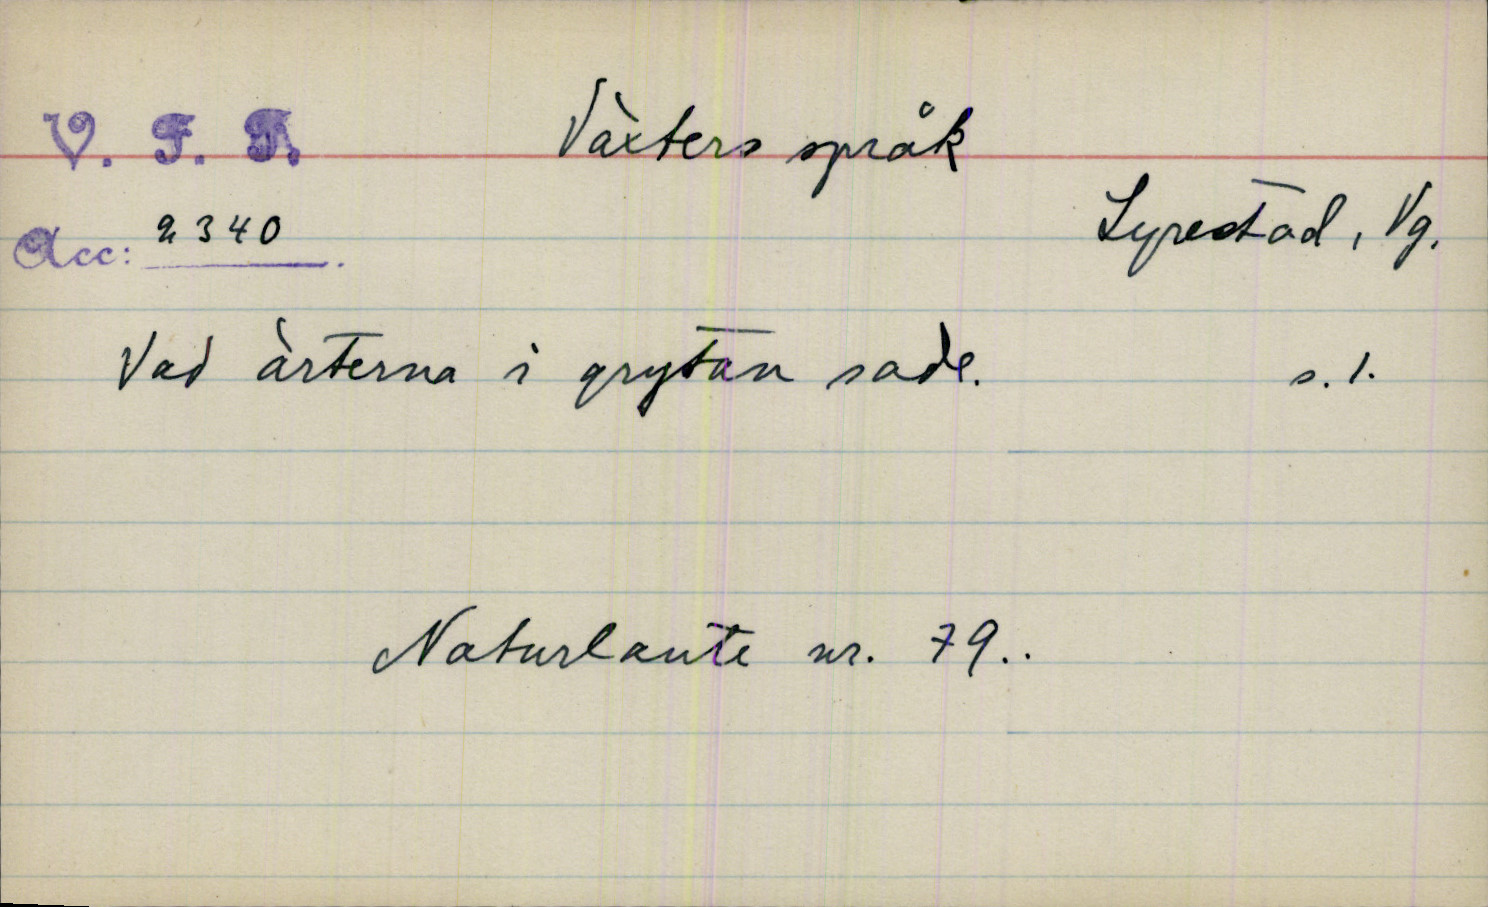 V. F. F.
Växters språk
Lyrestad, Vg.
Acc: 2340.
Vad ärterna i grytan sade. s. 1.
Naturlaute nr. 79..